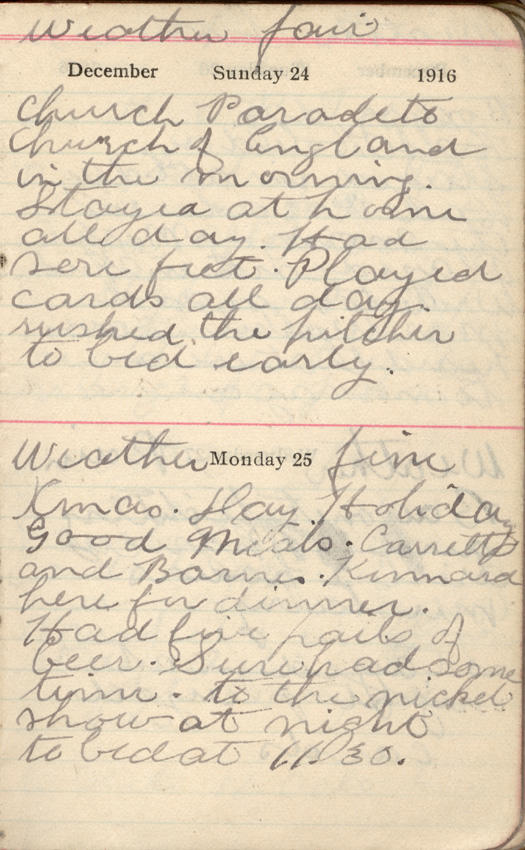 Weather fair
December Sunday 24 1916
Church Parade to
Church of England
in the morning.
Stayed at home
all day. Had
sore feet. Played
cards all day.
rushed the pitcher
to bed early.
Weather Monday 25 fine
Xmas. Day. Holiday
Good Meals. Carrette
and Barnes. Kinnard
here for dinner.
Had five pails of
beer. Sure had some
time. to the nickel
show at night
to bed at 11.30.